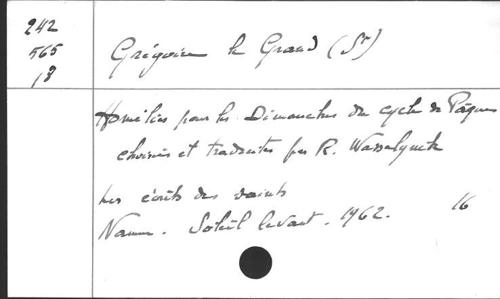 242
565
18
Grégoire le Grand (St)
Homélies pour les Dimanches du cycle de Pâques
choisies et traduites par R. Wasselynck
Les écrits des saints
Namur. Soleil levant. 1962.
16